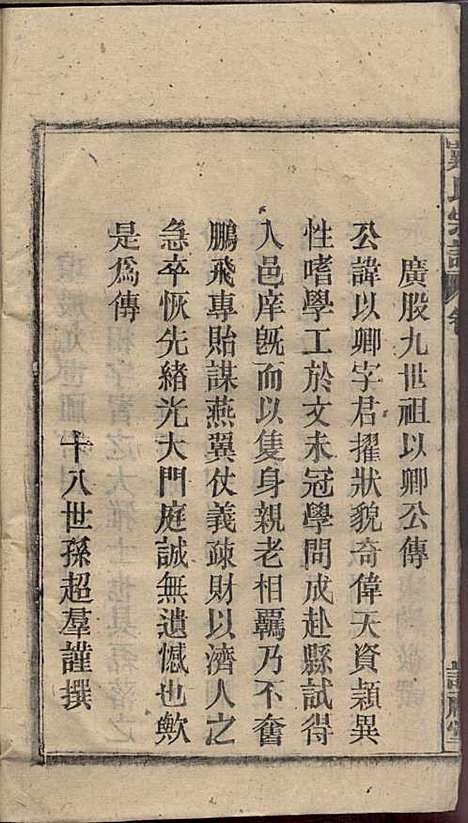 廣股九世祖以卿公傳
公諱以卿字君擢狀貌奇偉天資頴異
性嗜學工於文未冠學問成赴縣試得
入邑庠旣而以隻身親老相羈乃不奮
鵬飛專貽謀燕翼仗義疎財以濟人之
急卒恢先緒光大門庭誠無遺憾也歟
是爲傳
十八世孫超羣謹撰